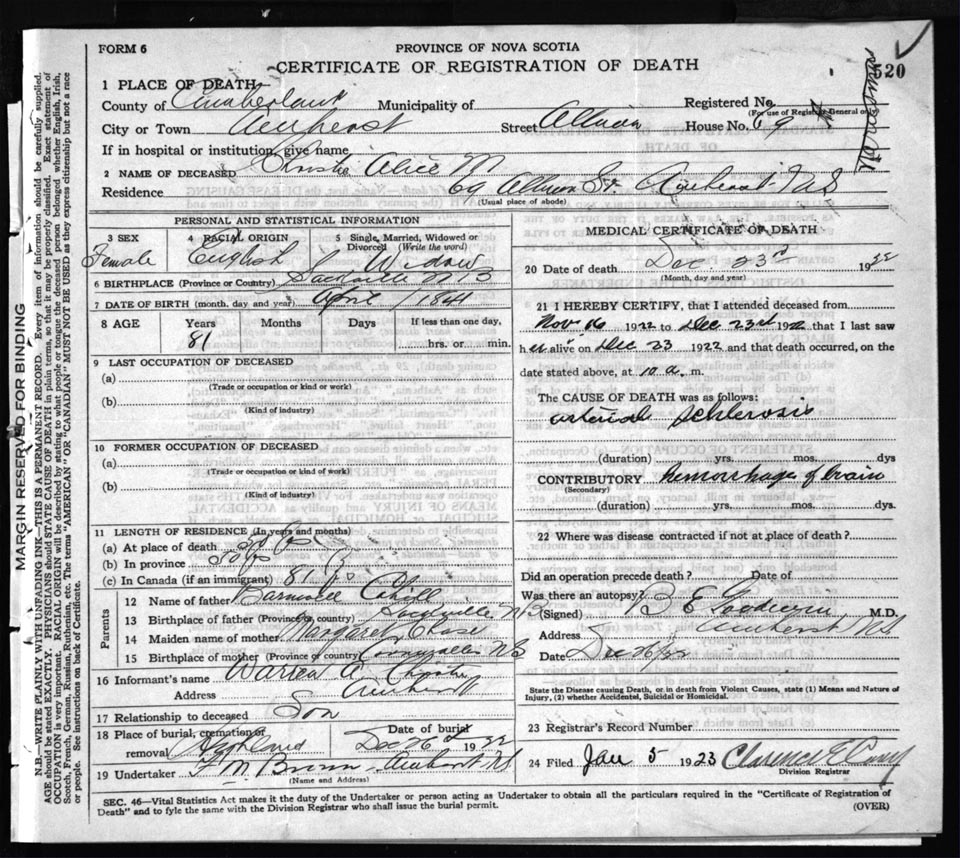 FORM 6
PROVINCE OF NOVA SCOTIA
CERTIFICATE OF REGISTRATION OF DEATH
520
1 PLACE OF DEATH—
County of Cumberland Municipality of Registered No.
(For use of Registrar General only)
City or Town Amherst Street Albion House No. 69
If in hospital or institution, give name
2 NAME OF DECEASED Christie Alice M
Residence 69 Albion St. Amherst N.S
(Usual place of abode)
PERSONAL AND STATISTICAL INFORMATION
3 SEX Female
4 RACIAL ORIGIN English
5 Single, Married, Widowed or Divorced (Write the word) Widow
6 BIRTHPLACE (Province or Country) Sackville N B
7 DATE OF BIRTH (month, day and year) April 1841
8 AGE Years Months Days If less than one day,
81 hrs. or min.
9 LAST OCCUPATION OF DECEASED
(a)
(Trade or occupation or kind of work)
(b)
(Kind of industry)
10 FORMER OCCUPATION OF DECEASED
(a)
(Trade or occupation or kind of work)
(b)
(Kind of industry)
11 LENGTH OF RESIDENCE (In years and months)
(a) At place of death
(b) In province
(c) In Canada (if an immigrant) 81
Parents
12 Name of father Cahill
13 Birthplace of father (Province or country) Sackville NB
14 Maiden name of mother Margaret Chase
15 Birthplace of mother (Province or country) Cornwallis NS
16 Informant's name Warren Christie
Address Amherst
17 Relationship to deceased Son
18 Place of burial, cremation or removal Highland
Date of burial Dec 26 1922
19 Undertaker F M Brown Amherst NS
(Name and Address)
MEDICAL CERTIFICATE OF DEATH
20 Date of death Dec 23rd 1922
(Month, day and year)
21 I HEREBY CERTIFY, that I attended deceased from
Nov 16 1922 to Dec 23rd 1922 that I last saw
her alive on Dec 23 1922 and that death occurred, on the
date stated above, at 10 a. m.
The CAUSE OF DEATH was as follows:
arterial schlerosis
(duration) yrs. mos. dys
CONTRIBUTORY hemorrhage of brain
(Secondary)
(duration) yrs. mos. dys.
22 Where was disease contracted if not at place of death?
Did an operation precede death? Date of
Was there an autopsy?
(Signed) B E Goodwin M.D.
Address Amherst NS
Date Dec 26/22
State the Disease causing Death, or in death from Violent Causes, state (1) Means and Nature of
Injury, (2) whether Accidental, Suicidal or Homicidal.
23 Registrar's Record Number
24 Filed Jan 5 1923 Clarence E
Division Registrar
SEC. 46—Vital Statistics Act makes it the duty of the Undertaker or person acting as Undertaker to obtain all the particulars required in the "Certificate of Registration of
Death" and to fyle the same with the Division Registrar who shall issue the burial permit. (OVER)
MARGIN RESERVED FOR BINDING
N.B.—WRITE PLAINLY WITH UNFADING INK—THIS IS A PERMANENT RECORD. Every item of information should be carefully supplied.
AGE should be stated EXACTLY. PHYSICIANS should STATE CAUSE OF DEATH in plain terms, so that it may be properly classified. Exact statement of
OCCUPATION is very important. RACIAL ORIGIN will be described by stating to what people or tongue the deceased person belonged whether English, Irish,
Scotch, French, German, Russian, Ruthenian, etc. The terms "AMERICAN" OR "CANADIAN" MUST NOT BE USED as they express citizenship but not a race
or people. See instructions on back of Certificate.